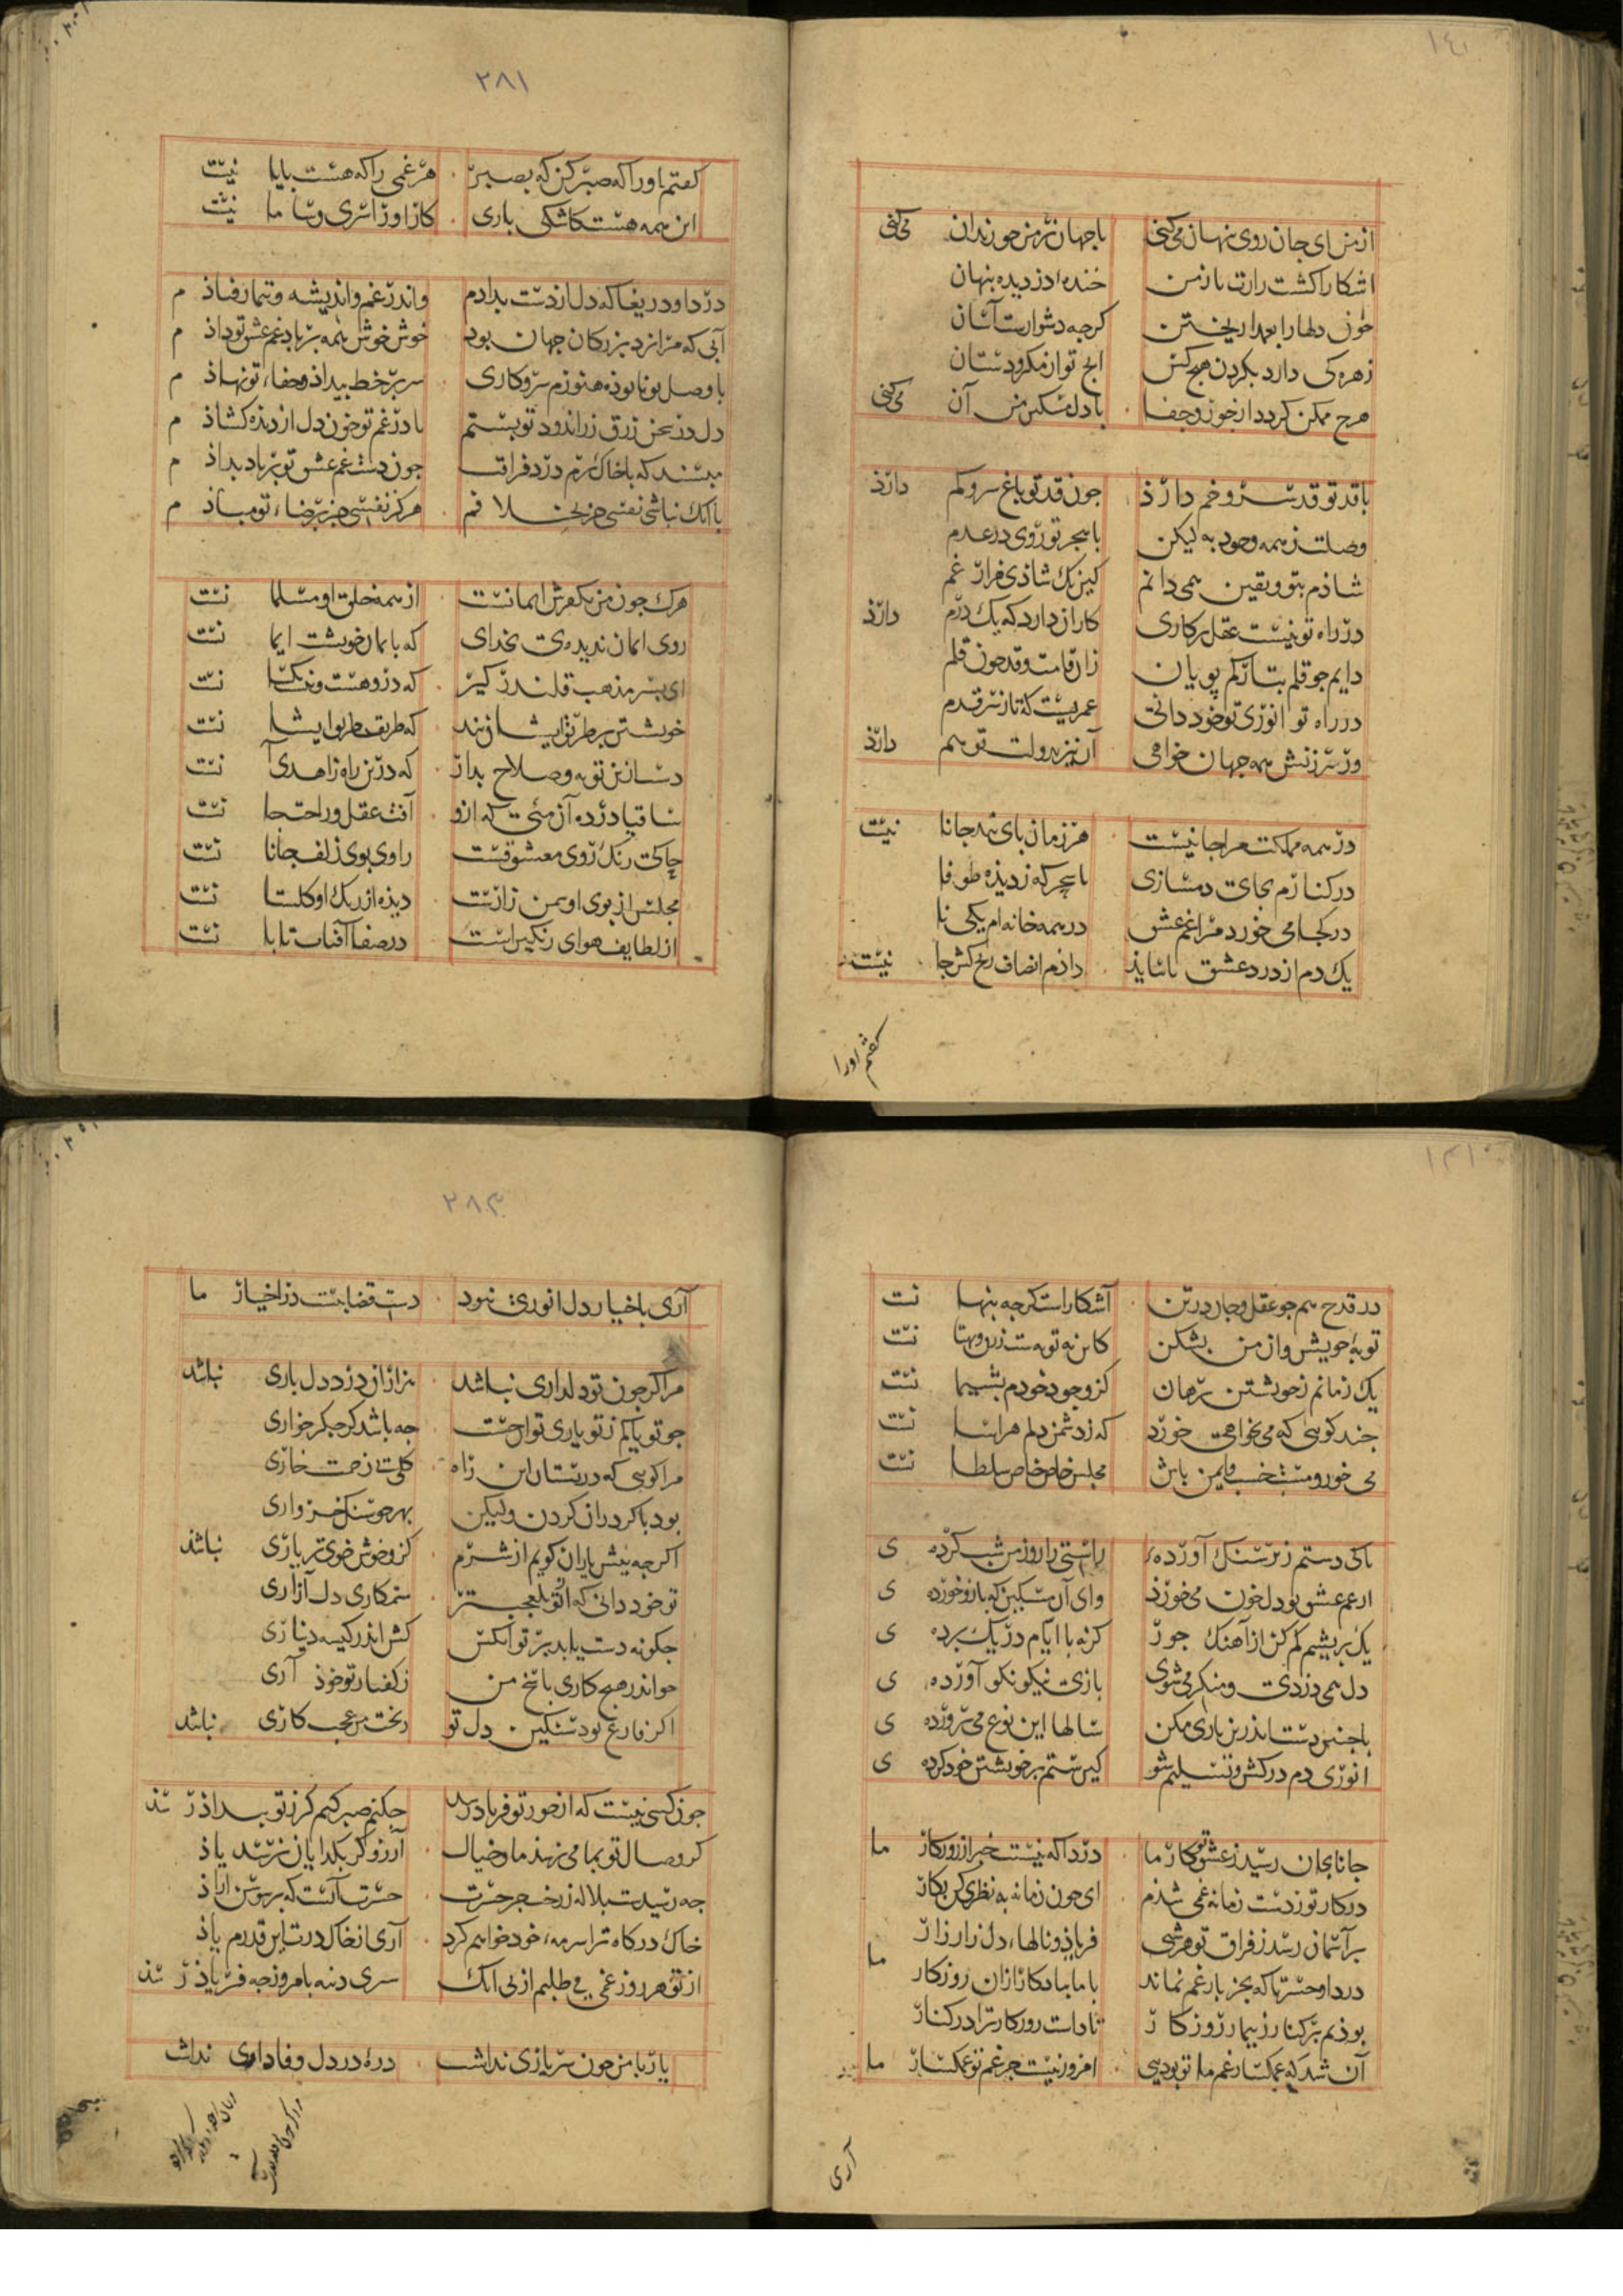 ١٤١
ازمن ای جان روی نهان می‌کنی باجهان بر من جو زندان می‌کنی
اشکارا کشت رازت باز من خنده دزدیده پنهان
خون دلها را بعمدا ریختن کرچه دشوارست آسان
زهره کی دارد بکردن هیچ کس انج تو از مکر و دستان
هرچ ممکن کردد از جور و جفا بادل مسکین من آن می‌کنی
باقد تو قد سرو خم دارذ جون قد تو باغ سرو کم دارذ
وصلت ز همه وجود به لیکن باهجر تو روی در عدم
شاذم بتو و یقین همی دانم کین یک شاذی هزار غم
در راه تو نیست عقل بر کاری کار ان دارد که یک درم دارذ
دایم جو قلم بتارکم پویان زان قامت و قد جون قلم
در راه تو انوری تو خود دانی عمریست که تا ز سر قدم
ور سرزنش همه جهان خواهی آن نیز بدولت تو هم دارذ
در همه مملکت مرا جانیست هر زمان بای بند جانا نیست
در کنارم بجای دمسازی تا سحرکه ز دیده طوفا
در کجا می خورد مرا غم عشق در همه خانه‌ام یکی نا
یک دم از درد عشق ناساید داذم انصاف رنج کش جا نیست
کفتم اورا
٢٨١
کفتم اورا که صبر کن که بصبر هر غمی را که هست پایا نیست
این همه هست کاشکی باری کار او را سری و سا ما نیست
دردا و دریغا که دل از دست بدادم واندر غم و اندیشه و تیمار فتاذ م
آبی که مرا نزد بزرکان جهان بود خوش خوش همه بر باد غم عشق تو داذ م
با وصل تو نابوذه هنوزم سر و کاری سر بر خط بیداذ و جفاء تو نهاذ م
دل در سخن زرق زراندود تو بستم تا در غم تو خون دل از دیده کشاذ م
مبسند که باخاک برم درد فراقت جون دست غم عشق تو بر باد بداذ م
با آنک نباشی نفسی جز بخلافم هرکز نفسی جز برضاء تو مباذ م
هرک جون من بکفرش ایمانست از همه خلق او مسلما نست
روی ایمان ندیده‌ی بخدای که بایمان خویشت ایما نست
ای بسر مذهب قلندر کیر که درو هست و نیست یکسا نست
خویشتن بر طریق ایشان بند که طریقت طریق ایشا نست
دست ازین توبه و صلاح بدار که درین راه زاهدی آ نست
ساقیا در ده آن می‌ی که ازو آفت عقل و راحت جا نست
حاکی رنک روی معشوقست راوی بوی زلف جانا نست
مجلس از بوی او سمن زارست دیده از رنک او کلستا نست
از لطایف هوای رنکین است در صفا آفتاب تابا نست
در قدح هم جو عقل و جان در تن آشکاراست کرچه پنها نست
توبهٔ خویش و از من بشکن کان نه توبه‌ست زور و بهتا نست
یک زمانم ز خویشتن برهان کز وجود خودم پشیما نست
جند کویی که می نخواهی خورد که ز دشمن دلم هراسا نست
می خور و مست خسب و ایمن باش مجلس خاص خاص سلطا نست
باکی دستم زیر سنک آورده راستی را روز من شب کرده ی
از غم عشق تو دل خون می‌خورذ وای آن مسکین که با او خورده ی
یک بریشم کم کن از آهنک جور کر نه با ایام در یک برده ی
دل همی دزدی و منکر می‌شوی بازی نیکو نکو آورده ی
با چنین دست اندرین بازی مکن سالها این نوع می‌پرورده ی
انوری دم درکش و تسلیم شو کین ستم بر خویشتن خود کرده ی
جانا بجان رسید ز عشق تو کار ما دردا که نیست خبر از روزکار ما
در کار تو ز دست زمانه غمی شذم ای جون زمانه بد نظری کن بکار
بر آسمان رسد ز فراق تو هر شبی فریاد و نالهاء دل زار زار ما
دردا و حسرتا که بجز بار غم نماند با ما بیادکار ازان روزکار
بوذیم بر کنار ز تیمار روزکار تا داشت روزکار ترا در کنار
آن شد که غمکسار غم ما تو بودیی امروز نیست جز غم تو غمکسار ما
آری
٢٨٣
آری باختیار دل انوری نبود دست قضا ببست در اختیار ما
مرا کر جون تو دلداری نباشد هزاران درد دل باری نباشد
جو تو یاکم ز تو یاری تواجست جه باشد کر جکر خواری
مرا کویی که در بستان این راه کلی بی زحمت خاری
بود با کردران کردن ولیکن بهر جو سنک خرواری
اکرچه بیش یاران کویم از شرم کز و خوش خوی تر یاری نباشد
تو خود دانی که از تو بلعجبتر ستمکاری دل آزاری
جکونه دست یابد بر تو آنکس کش اندر کیسه دیناری
جو اندر هیج کاری باسخ من ز کفتار تو خوذ آری
اکر فارغ بود سنکین دل تو ز بخت من عجب کاری نباشد
جون کسی نیست که از جور تو فریاد رسد جکنم صبر کنم کر ز تو بیداد رسد
کر وصال تو بما می نرسد ما و خیال آرزو کر بکدایان نرسد یاذ
خاک درکاه ترا سرمه خود خواهم کرد آری از خاک درت این قدرم یاذ
یار با من جون سر یاری نداشت ذره در دل وفاداری نداشت